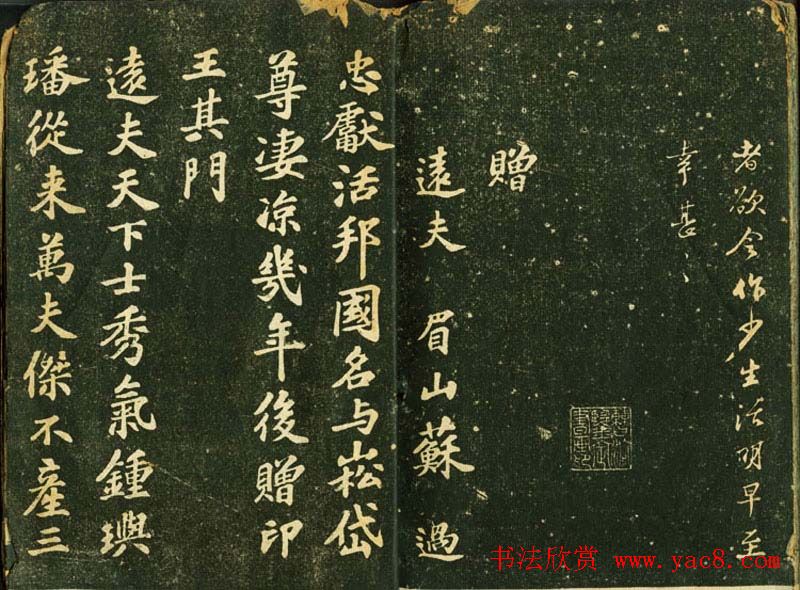 者欲令作少生活明早至
幸甚〻
贈
遠夫 眉山蘇過
忠獻活邦國名与崧岱
尊凄凉幾年後贈印
王其門
遠夫天下士秀氣鍾璵
璠從来萬夫傑不産三
书法欣赏 www.yac8.com